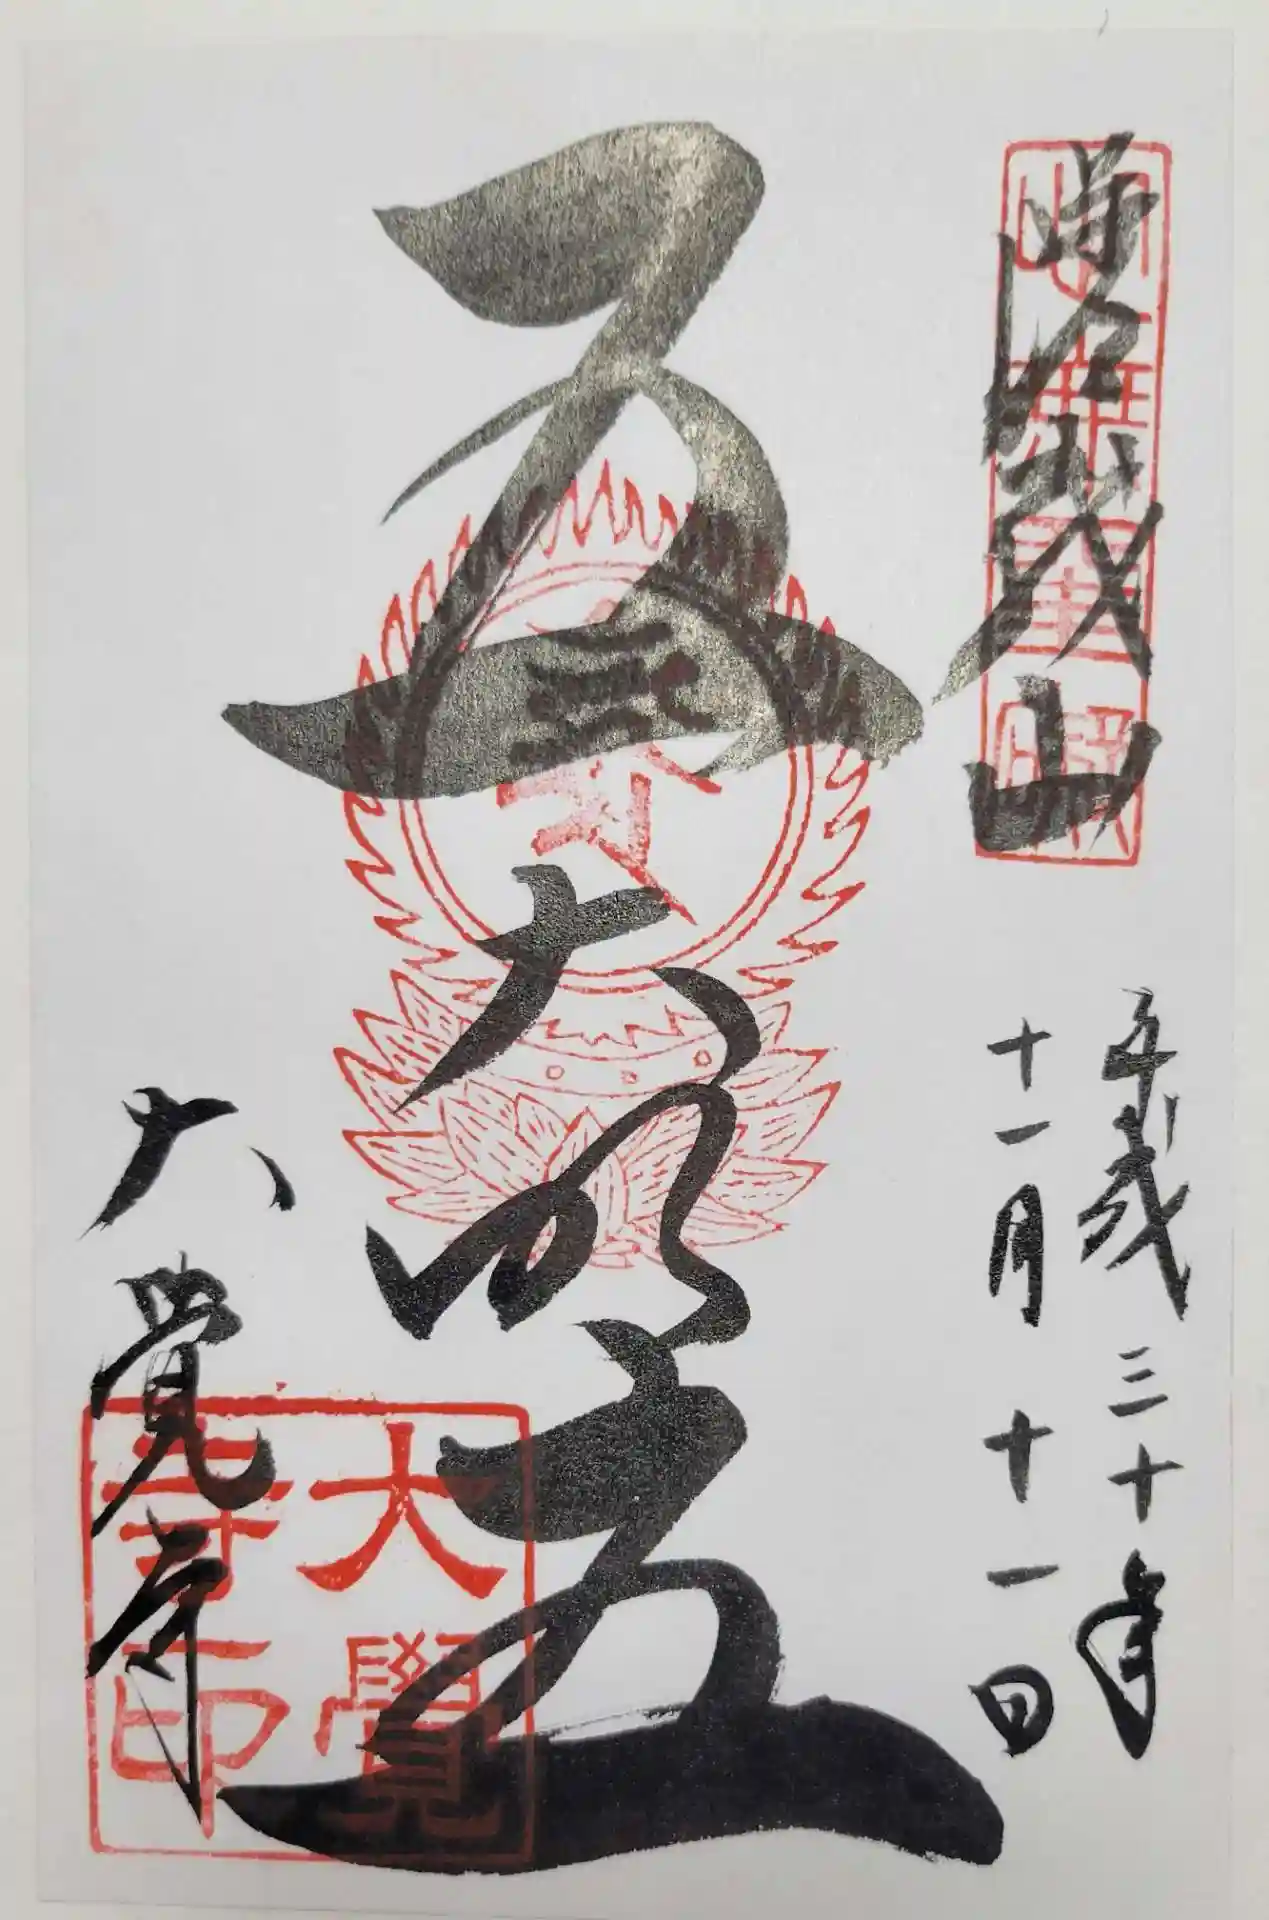 嵯峨山
心無罣礙
平成三十年
十一月十一日
五大明王
大覚寺
大覺
寺印